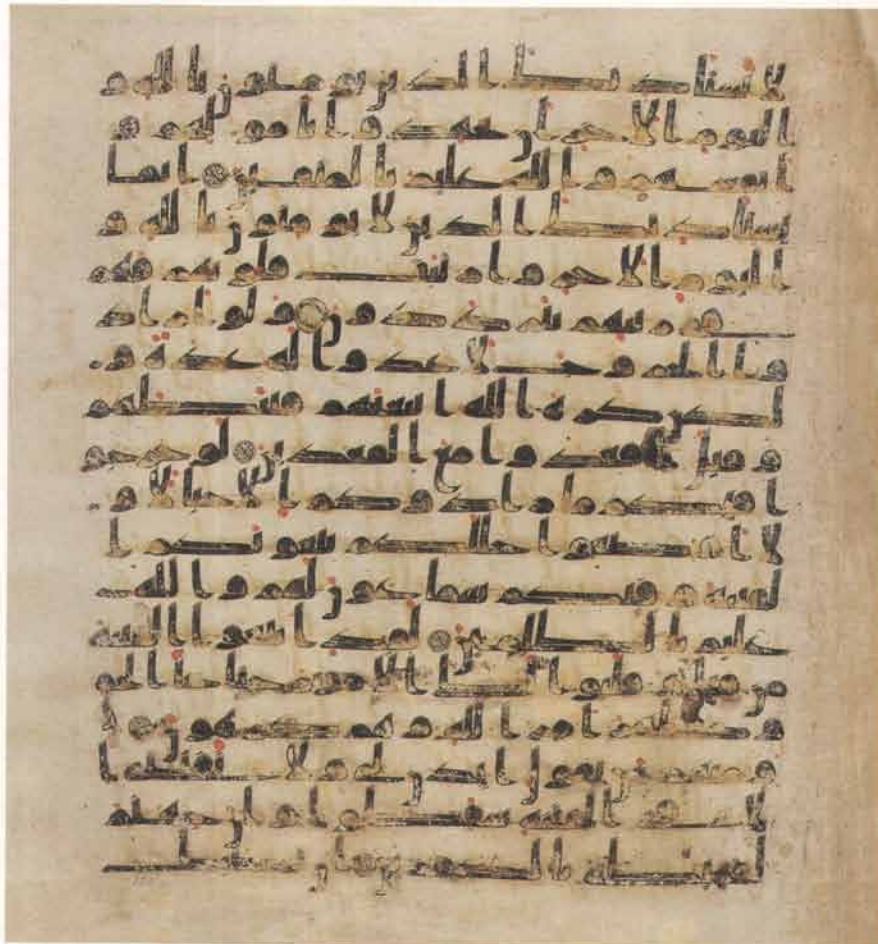 لا يستاذنك الذين يومنون بالله و
اليوم الاخر ان يجهدوا بامولهم و
انفسهم والله عليم بالمتقين انما
يستاذنك الذين لا يومنون بالله و
اليوم الاخر وارتابت قلوبهم فهم
في ريبهم يترددون ولو اراد
وا الخروج لاعدوا له عدة و
لكن كره الله انبعثهم فثبطهم
وقيل اقعدوا مع القعدين لو خرجو
ا فيكم ما زادوكم الا خبالا و
لا اوضعوا خللكم يبغونكم ا
لفتنة وفيكم سمعون لهم والله
عليم بالظلمين لقد ابتغوا الفتنة
من قبل وقلبوا لك الامور حتى جا الحق
وظهر امر الله وهم كرهون
ومنهم من يقول ايذن لي ولا تفتني ا
لا في الفتنة سقطوا وان جهنم
لمحيطة بالكفرين ان تصبك